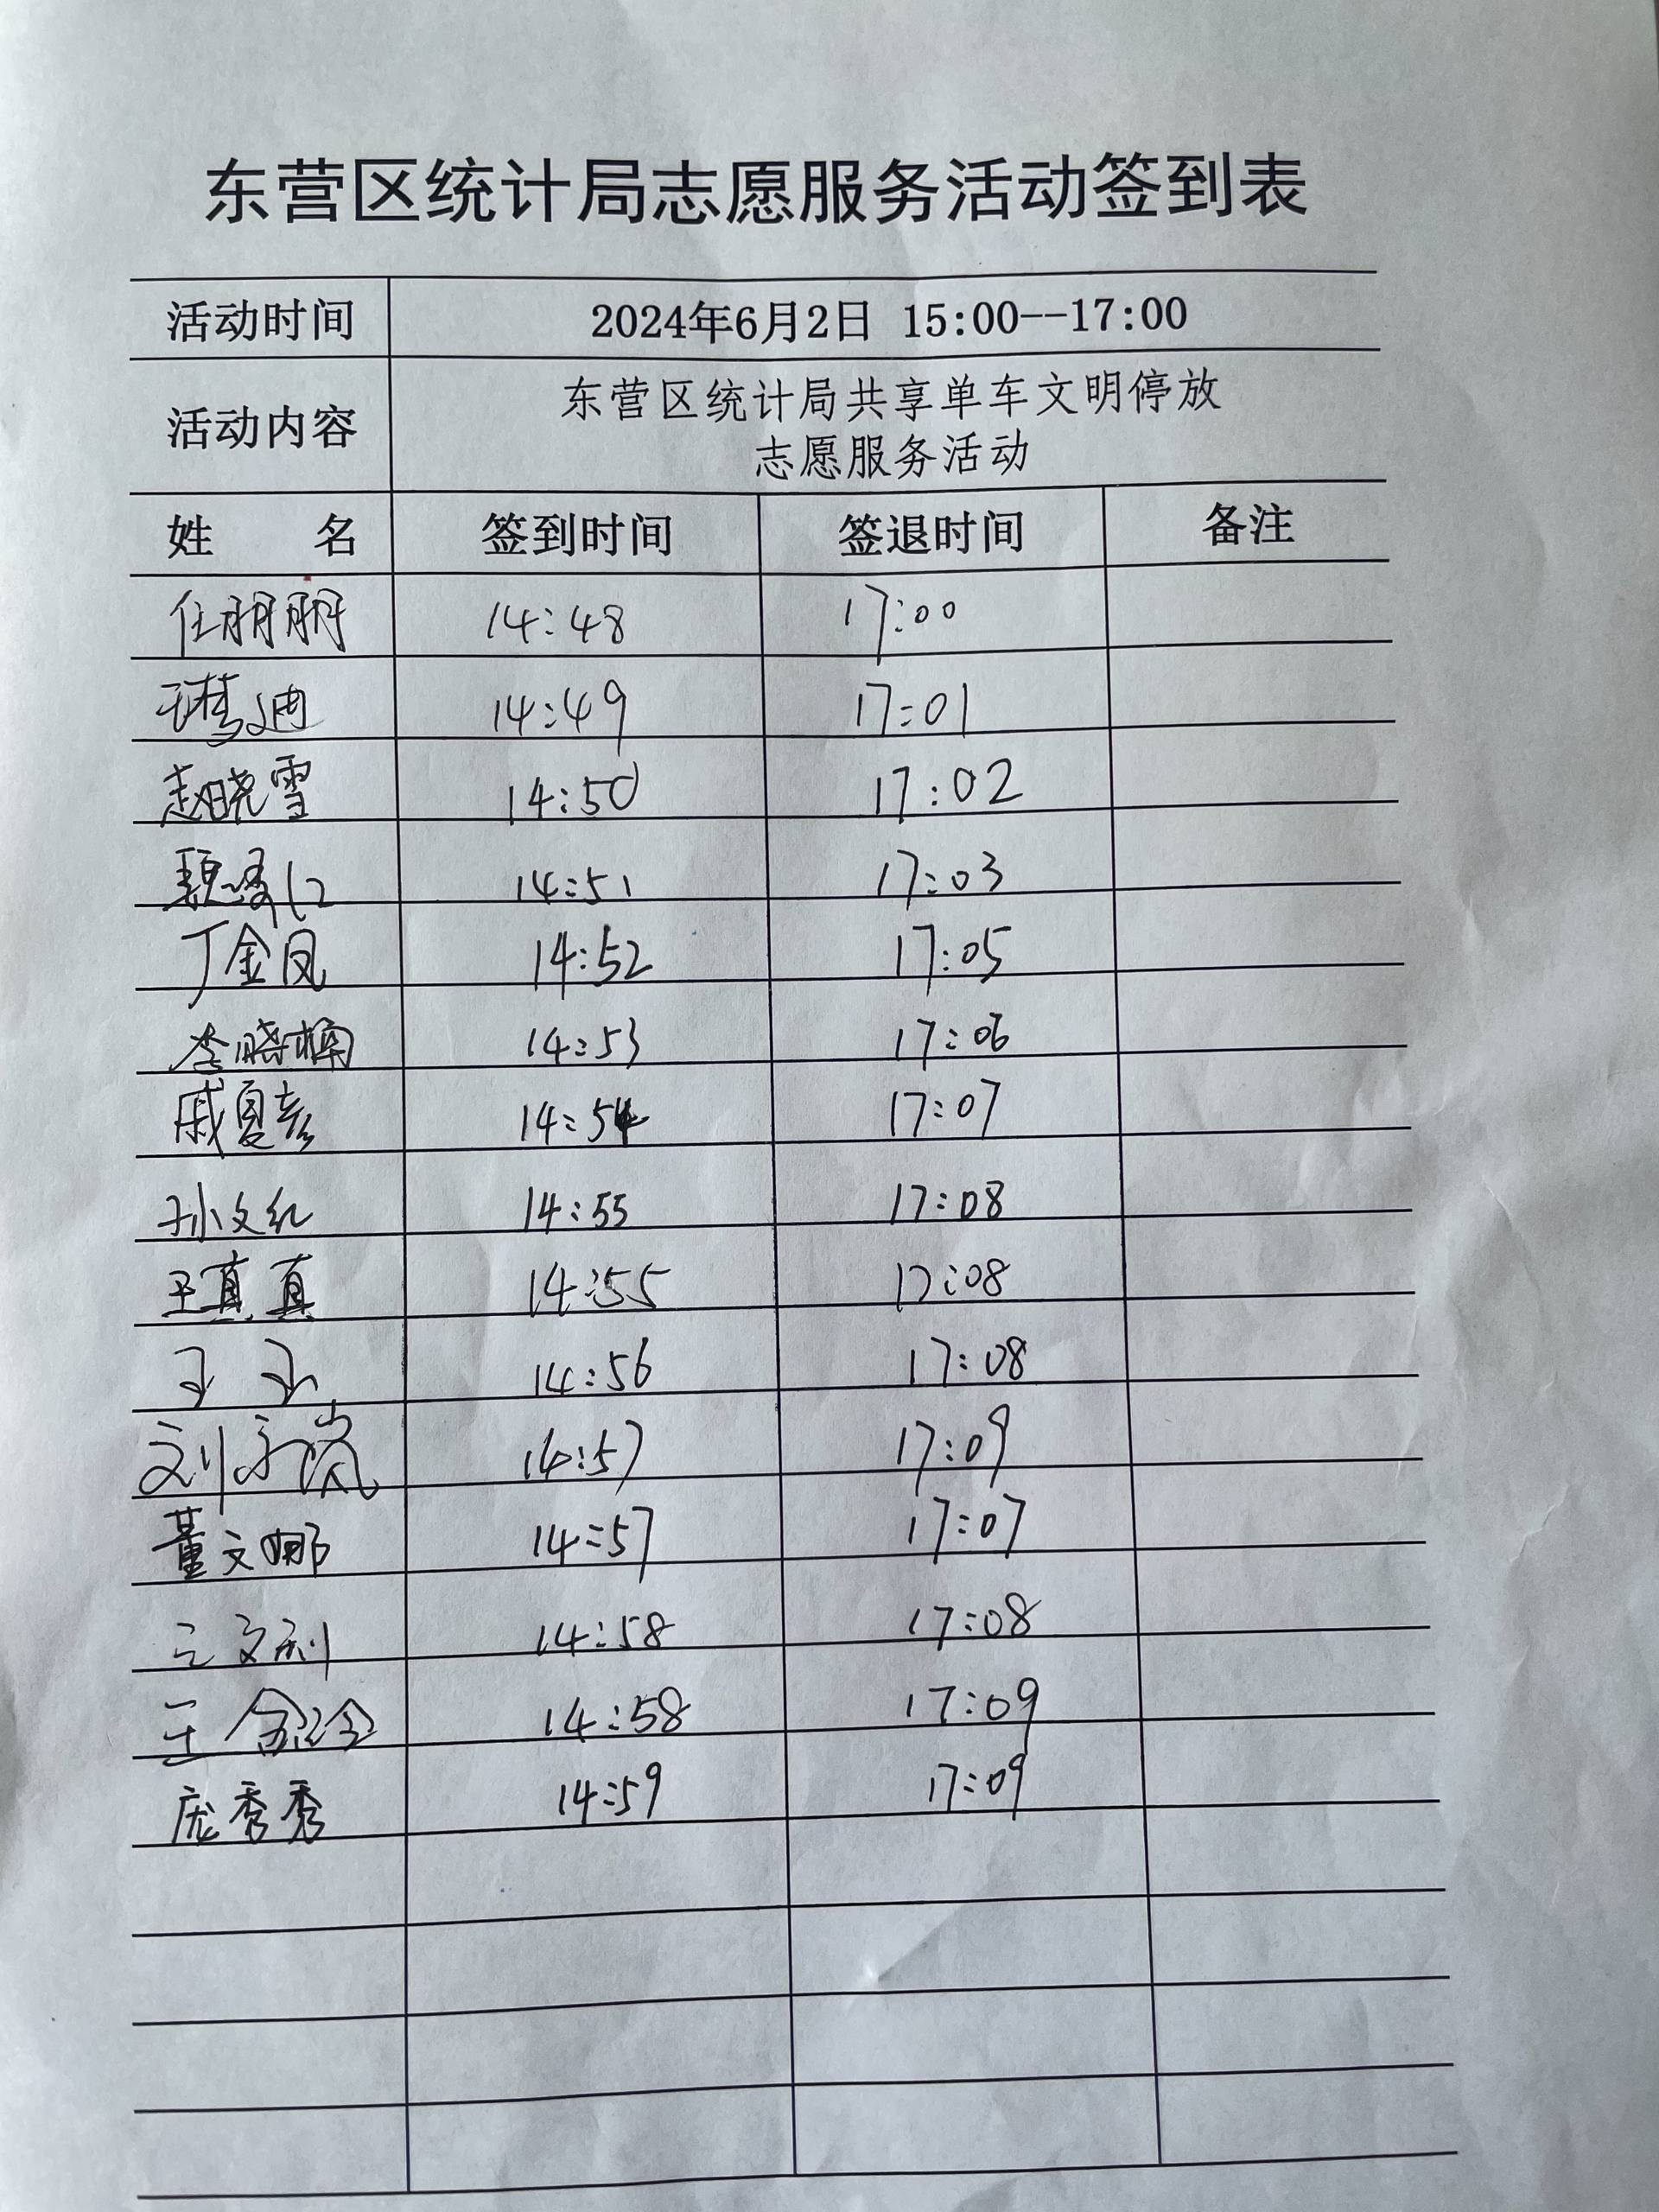 东营区统计局志愿服务活动签到表
活动时间 2024年6月2日 15:00--17:00
活动内容 东营区统计局共享单车文明停放
志愿服务活动
姓 名 签到时间 签退时间 备注
任朋朋 14:48 17:00
王梦迪 14:49 17:01
赵晓雪 14:50 17:02
魏 14:51 17:03
丁金凤 14:52 17:05
李晓楠 14:53 17:06
戚夏彦 14:54 17:07
孙文红 14:55 17:08
王真真 14:55 17:08
王 14:56 17:08
刘 岚 14:57 17:09
董文娜 14:57 17:07
14:58 17:08
王 14:58 17:09
庞秀秀 14:59 17:09